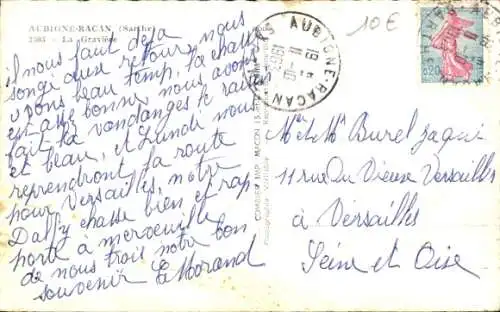 AUBIGNÉ-RACAN (Sarthe)
2303 - La Gravière
Il nous faut déjà
songé au retour nous
avons beau temps, la chasse
est assez bonne nous avons
fait la vendanges le raisin
et beau, et Lundi nous
reprendront la route
pour Versailles, notre
Daffy chasse bien et rap
porte à merveille
de nous trois notre bon
souvenir E Morand
COMBIER IMP. MACON
AUBIGNE-RACAN
10€
0,20
Mr et Me Burel Jacques
11 rue du Vieux Versailles
à Versailles
Seine et Oise